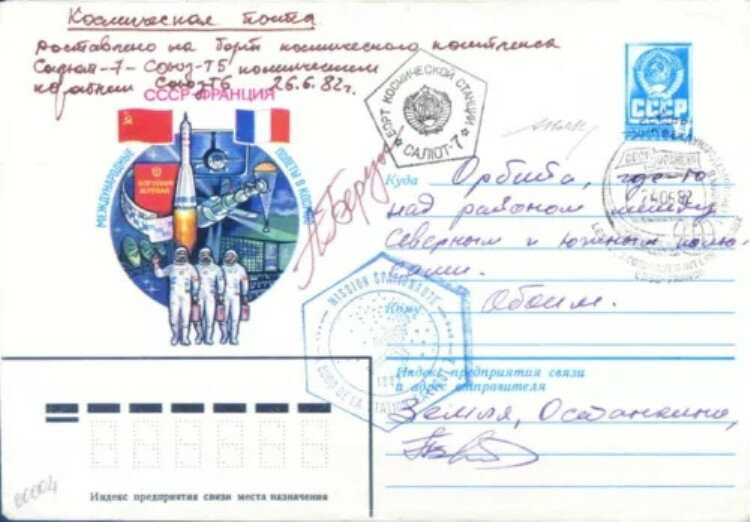 Космическая почта
Доставлено на борт космического комплекса
Салют-7-Союз-Т5 космическим
кораблем Союз Т6 26.6.82г.
СССР-ФРАНЦИЯ
МЕЖДУНАРОДНЫЕ ПОЛЕТЫ В КОСМОС
БОРТОВОЙ ЖУРНАЛ
БОРТ КОСМИЧЕСКОЙ СТАНЦИИ
САЛЮТ-7
СССР
Куда Орбита, где-то
над районом между
Северным и Южным полю-
сами.
Кому Обоим.
MISSION STATIONAUTE
BORD DE LA STATION
Индекс предприятия связи
и адрес отправителя
Земля, Останкино,
00004
Индекс предприятия связи места назначения